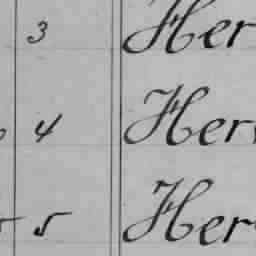 3 Her
4 Her
5 Her